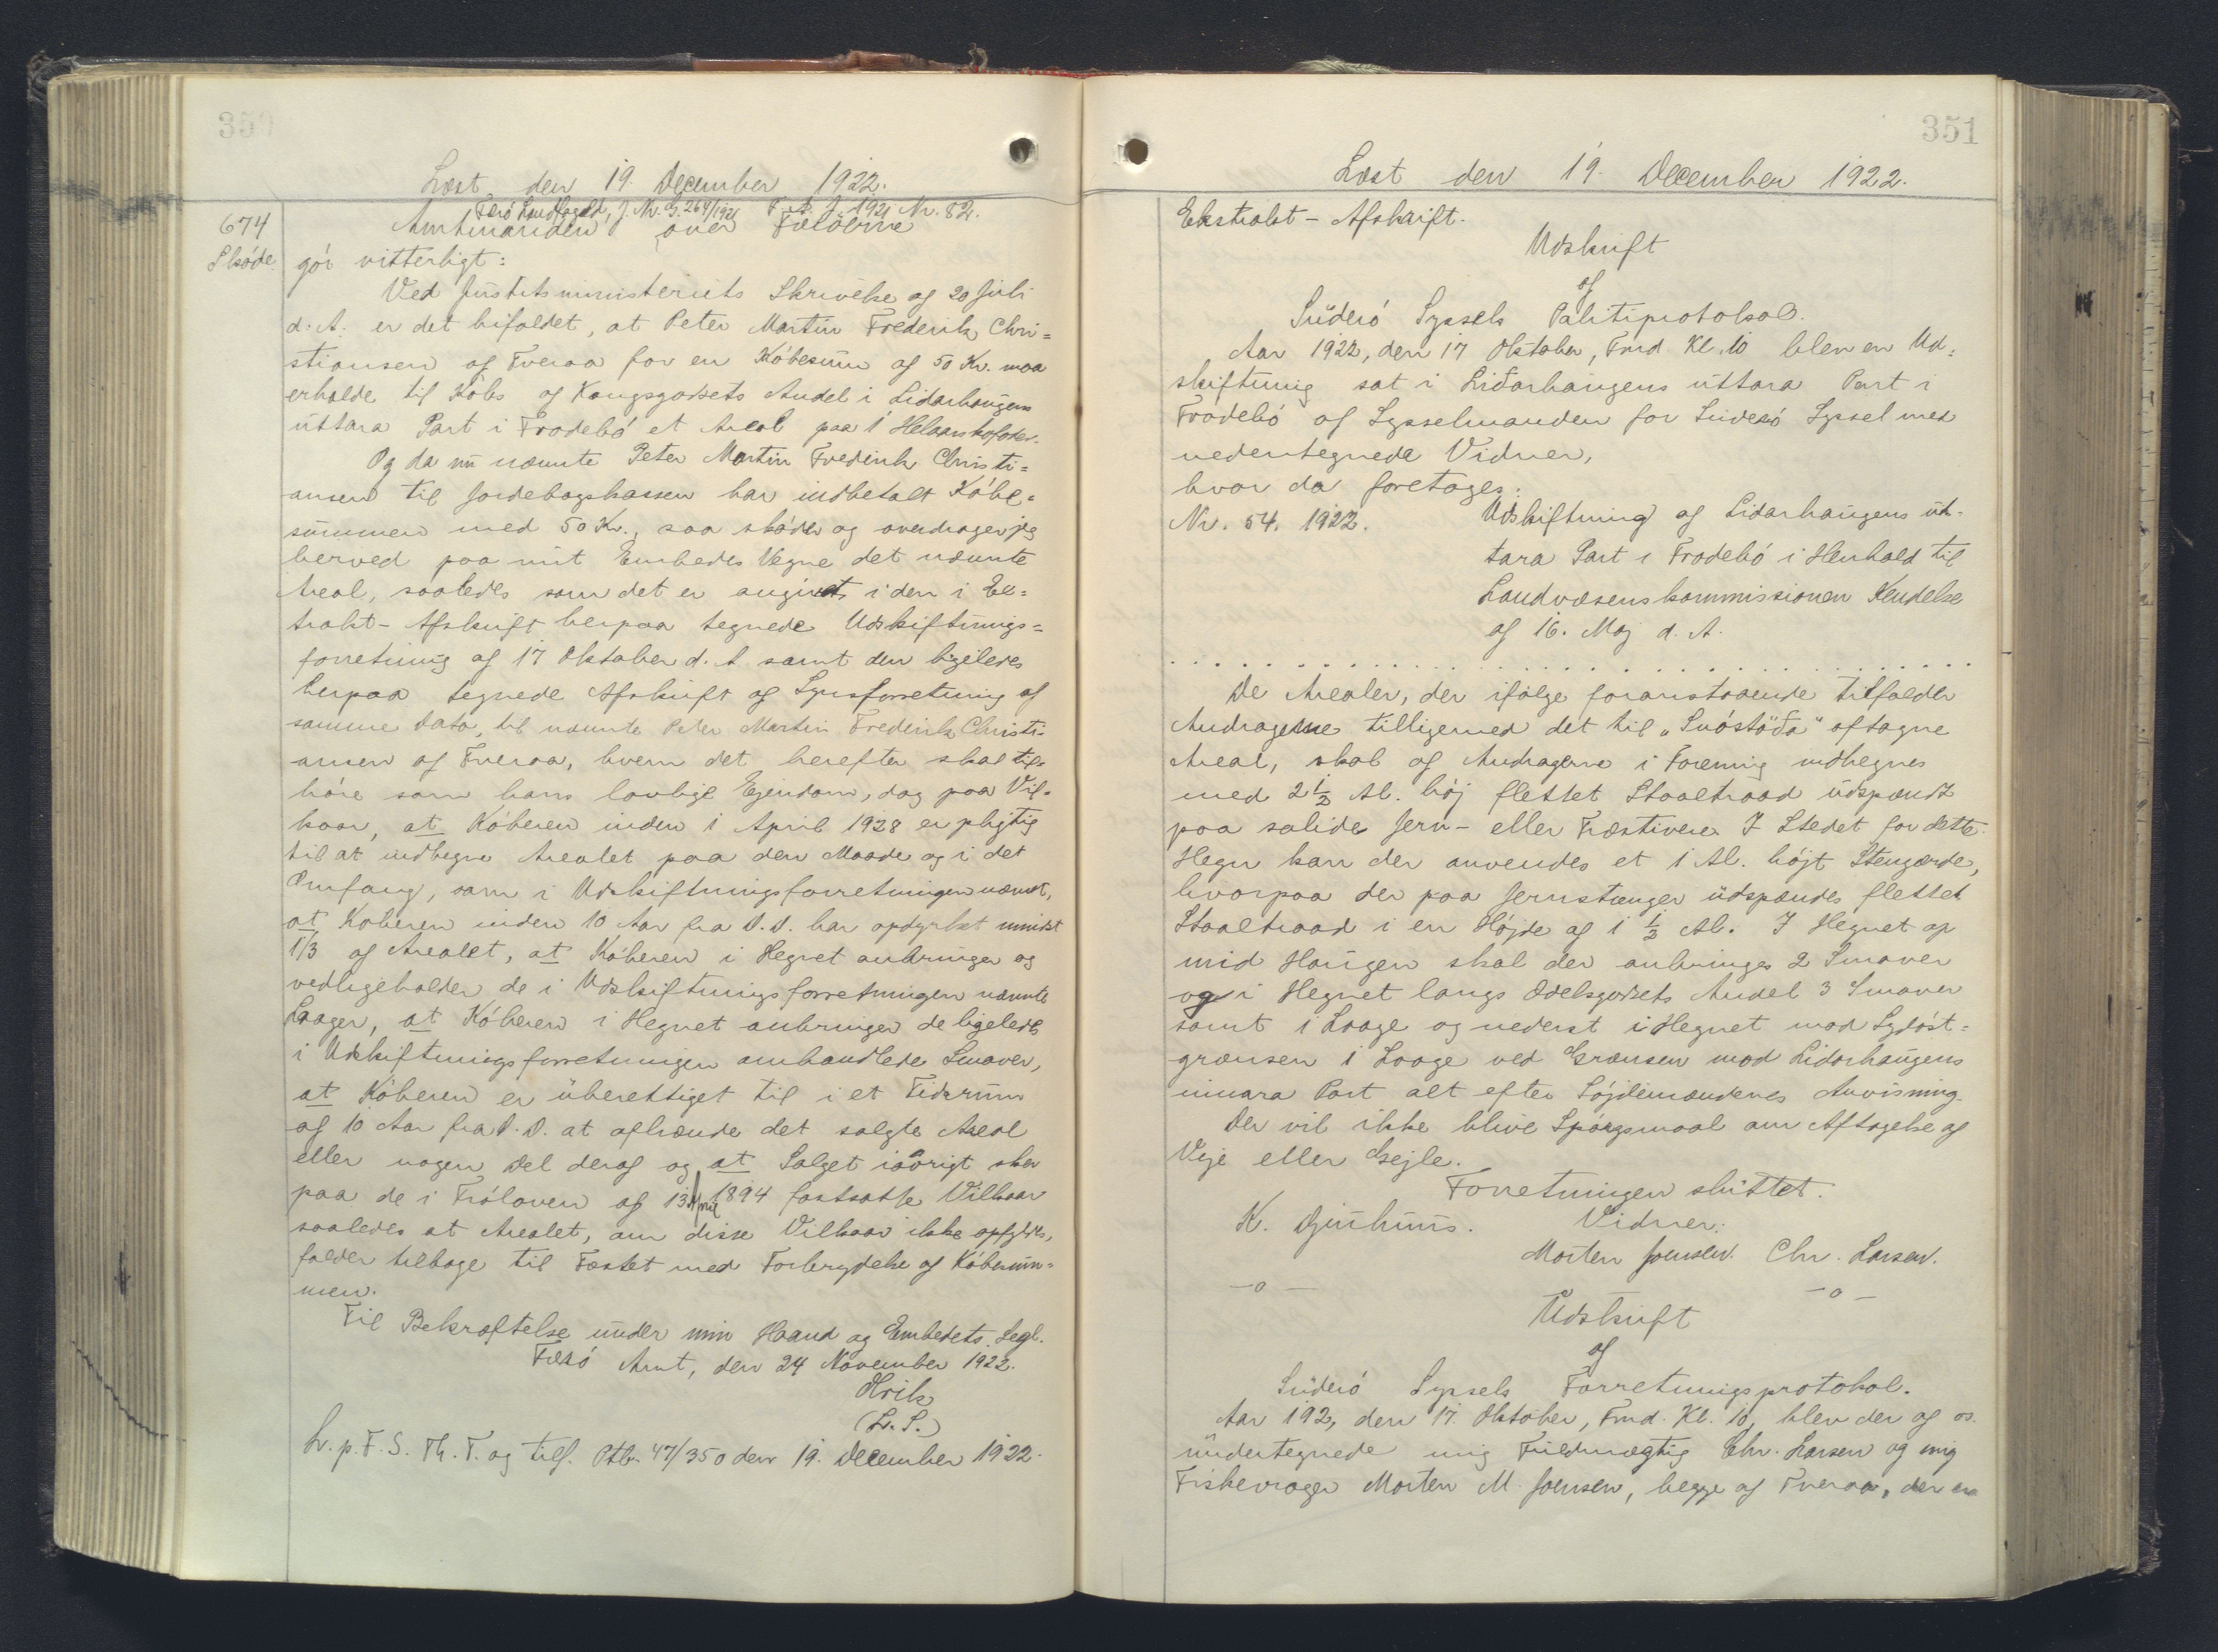 350
Læst den 19. December 1922.
Færø Landfoged, J. Nr. G. 264/1921 F. A. J. 1921 Nr. 82.
674
Amtmanden over Færöerne
Sköde
gör vitterligt:
Ved Justitsministeriets Skrivelse af 20 Juli
d. A. er det bifaldet, at Peter Martin Frederik Chri=
stiansen af Tveraa for en Köbesum af 50 Kr. maa
erholde til Købs af Kongsgodsets Andel i Lidarhaugens
uttara Part i Frodebö et Areal paa 1 Helaarskofoder.
Og da nu nævnte Peter Martin Frederik Christi=
ansen til Jordebogskassen har indbetalt Köbe=
summen med 50 Kr., saa sköder og overdrager jeg
herved paa mit Embedes Vegne det nævnte
Areal, saaledes som det er angivet i den i Ex=
trakt-Afskrift herpaa tegnede Udskiftnings=
forretning af 17 Oktober d. A. samt den ligeledes
herpaa tegnede Afskrift af Synsforretning af
samme Dato, til nævnte Peter Martin Frederik Christi=
ansen af Tveraa, hvem det herefter skal til=
höre som hans lovlige Ejendom, dog paa Vil=
kaar, at Köberen inden 1 April 1928 er pligtig
til at indhegne Arealet paa den Maade og i det
Omfang, som i Udskiftningsforretningen nævnt,
at Köberen inden 10 Aar fra D.D. har opdyrket mindst
1/3 af Arealet, at Köberen i Hegnet anbringer og
vedligeholder de i Udskiftningsforretningen nævnte
Laager, at Köberen i Hegnet anbringer de ligeledes
i Udskiftningsforretningen omhandlede Smaver,
at Köberen er uberettiget til i et Tidsrum
af 10 Aar fra D.D. at afhænde det solgte Areal
eller nogen Del deraf og at Salget iövrigt sker
paa de i Fröloven af 13 April 1894 fastsatte Vilkaar
saaledes at Arealet, om disse Vilkaar ikke opfyldes,
falder tilbage til Fæstet med Forbrydelse af Köbesum=
men.
Til Bekræftelse under min Haand og Embedets Segl.
Færö Amt, den 24 November 1922.
(L.S.)
L. p. F. S. Th. T. og tilf. Ptb. 47/350 den 19. December 1922.
351
Læst den 19. December 1922.
Ekstrakt-Afskrift.
Udskrift
af
Suderö Syssels Politiprotokol.
Aar 1922, den 17 Oktober, Fmd. Kl. 10 blev en Ud=
skiftning sat i Liðarhaugens uttara Part i
Frodebö af Sysselmanden for Suderö Syssel med
nedentegnede Vidner,
hvor da foretages:
Nr. 54. 1922. Udskiftning af Lidarhaugens ut=
tara Part i Frodebö i Henhold til
Landvæsenskommissionen Kendelse
af 16. Maj d. A.
De Arealer, der ifölge foranstaaende tilfalder
Andragerne tilligemed det til "Snóstöða" aftagne
Areal, skal af Andragerne i Forening indhegnes
med 2 1/2 Al. höj flettet Staaltraad udspændt
paa solide Jern- eller Træstivere. I Stedet for dette
Hegn kan der anvendes et 1 Al. højt Stengærde,
hvorpaa der paa Jernstænger udspændes flettet
Staaltraad i en Højde af 1 1/2 Al. I Hegnet op
mod Haugen skal der anbringes 2 Smaver
og i Hegnet langs Odelsgodsets Andel 3 Smaver
samt 1 Laage og nederst i Hegnet mod Sydöst=
grænsen 1 Laage ved Grænsen mod Lidarhaugens
innara Part alt efter Söjdemændenes Anvisning.
Der vil ikke blive Spörgsmaal om Aftagelse af
Veje eller Gejle.
Forretningen sluttet.
K. Djurhuus. Vidner:
Morten Joensen. Chr. Larsen.
-o- -o-
Udskrift
af
Suderö Syssels Forretningsprotokol.
Aar 192, den 17. Oktober, Fmd. Kl. 10, blev der af os
undertegnede mig Fuldmægtig Chr. Larsen og mig
Fiskevrager Morten M. Joensen, begge af Tveraa, der er